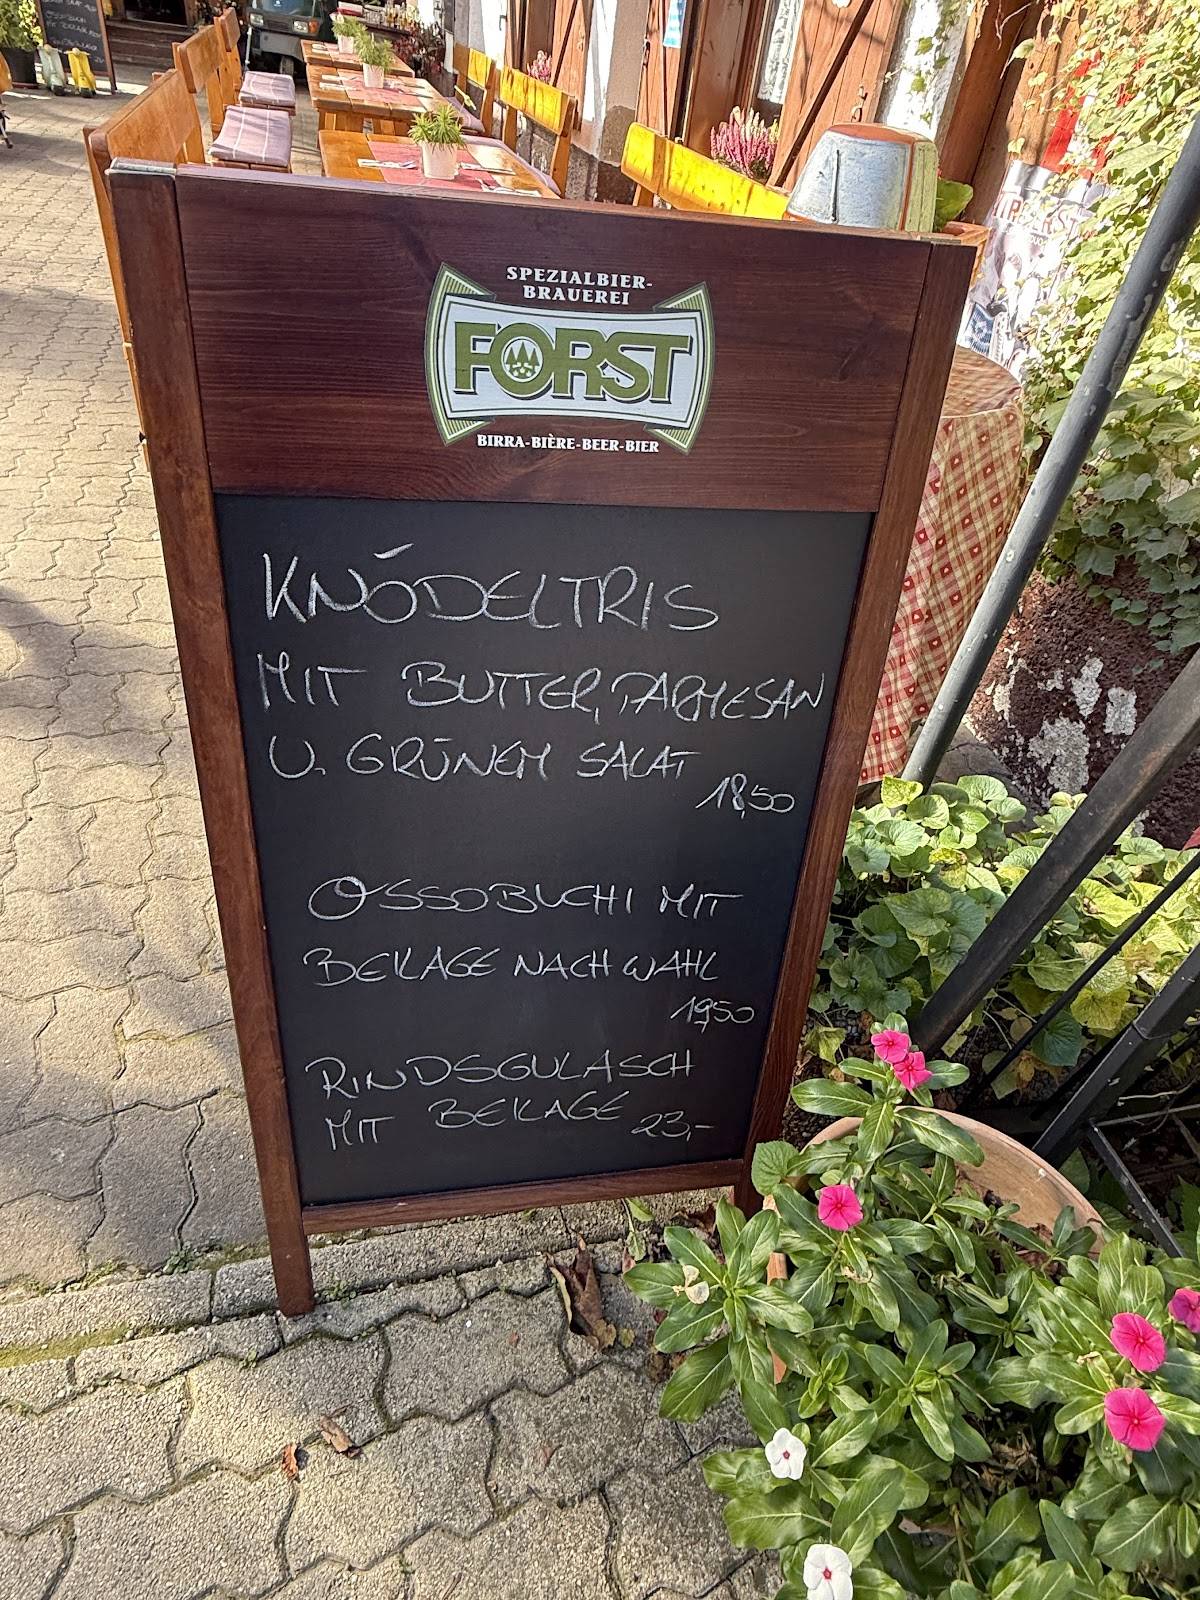 SPEZIALBIER-
BRAUEREI
FORST
BIRRA-BIÈRE-BEER-BIER
KNÖDELTRIS
MIT BUTTER, PARMESAN
U. GRÜNEM SALAT
18,50
OSSOBUCHI MIT
BEILAGE NACH WAHL
19,50
RINDSGULASCH
MIT BEILAGE 23,-